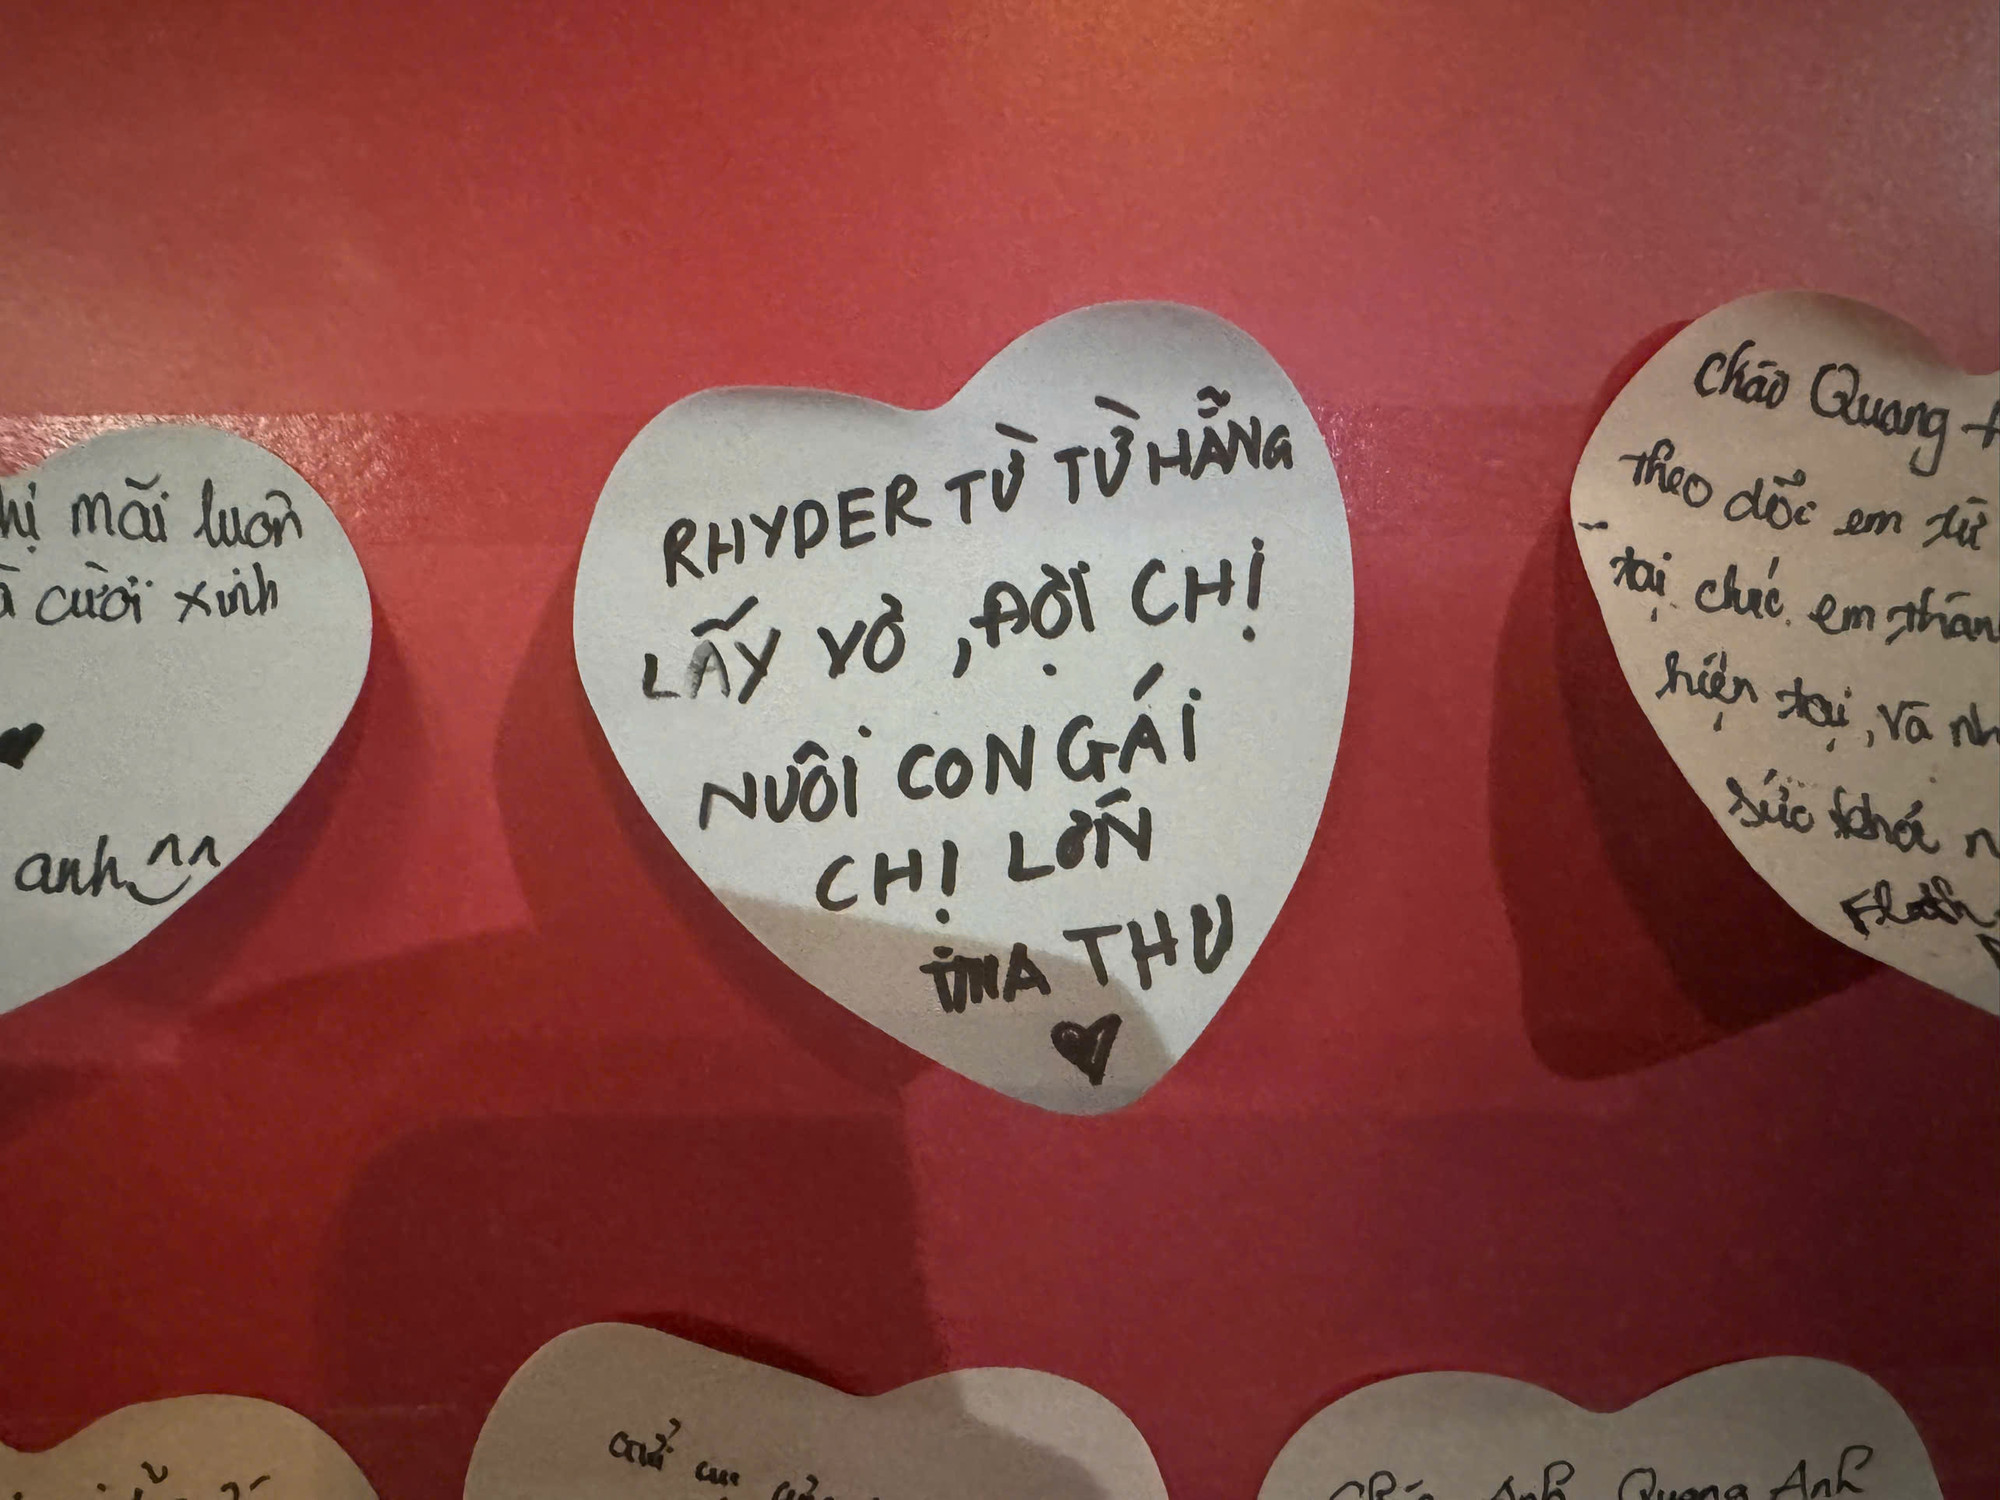 RHYDER TỪ TỪ HẴNG
LẤY VỢ, ĐỢI CHỊ
NUÔI CON GÁI
CHỊ LỚN
THU
mãi luôn
cười xinh
anh ^^
Chào Quang
theo dõi em từ
tại chúc em thàn
hiện tại, và nh
sức khoẻ n
Anh Quang Anh